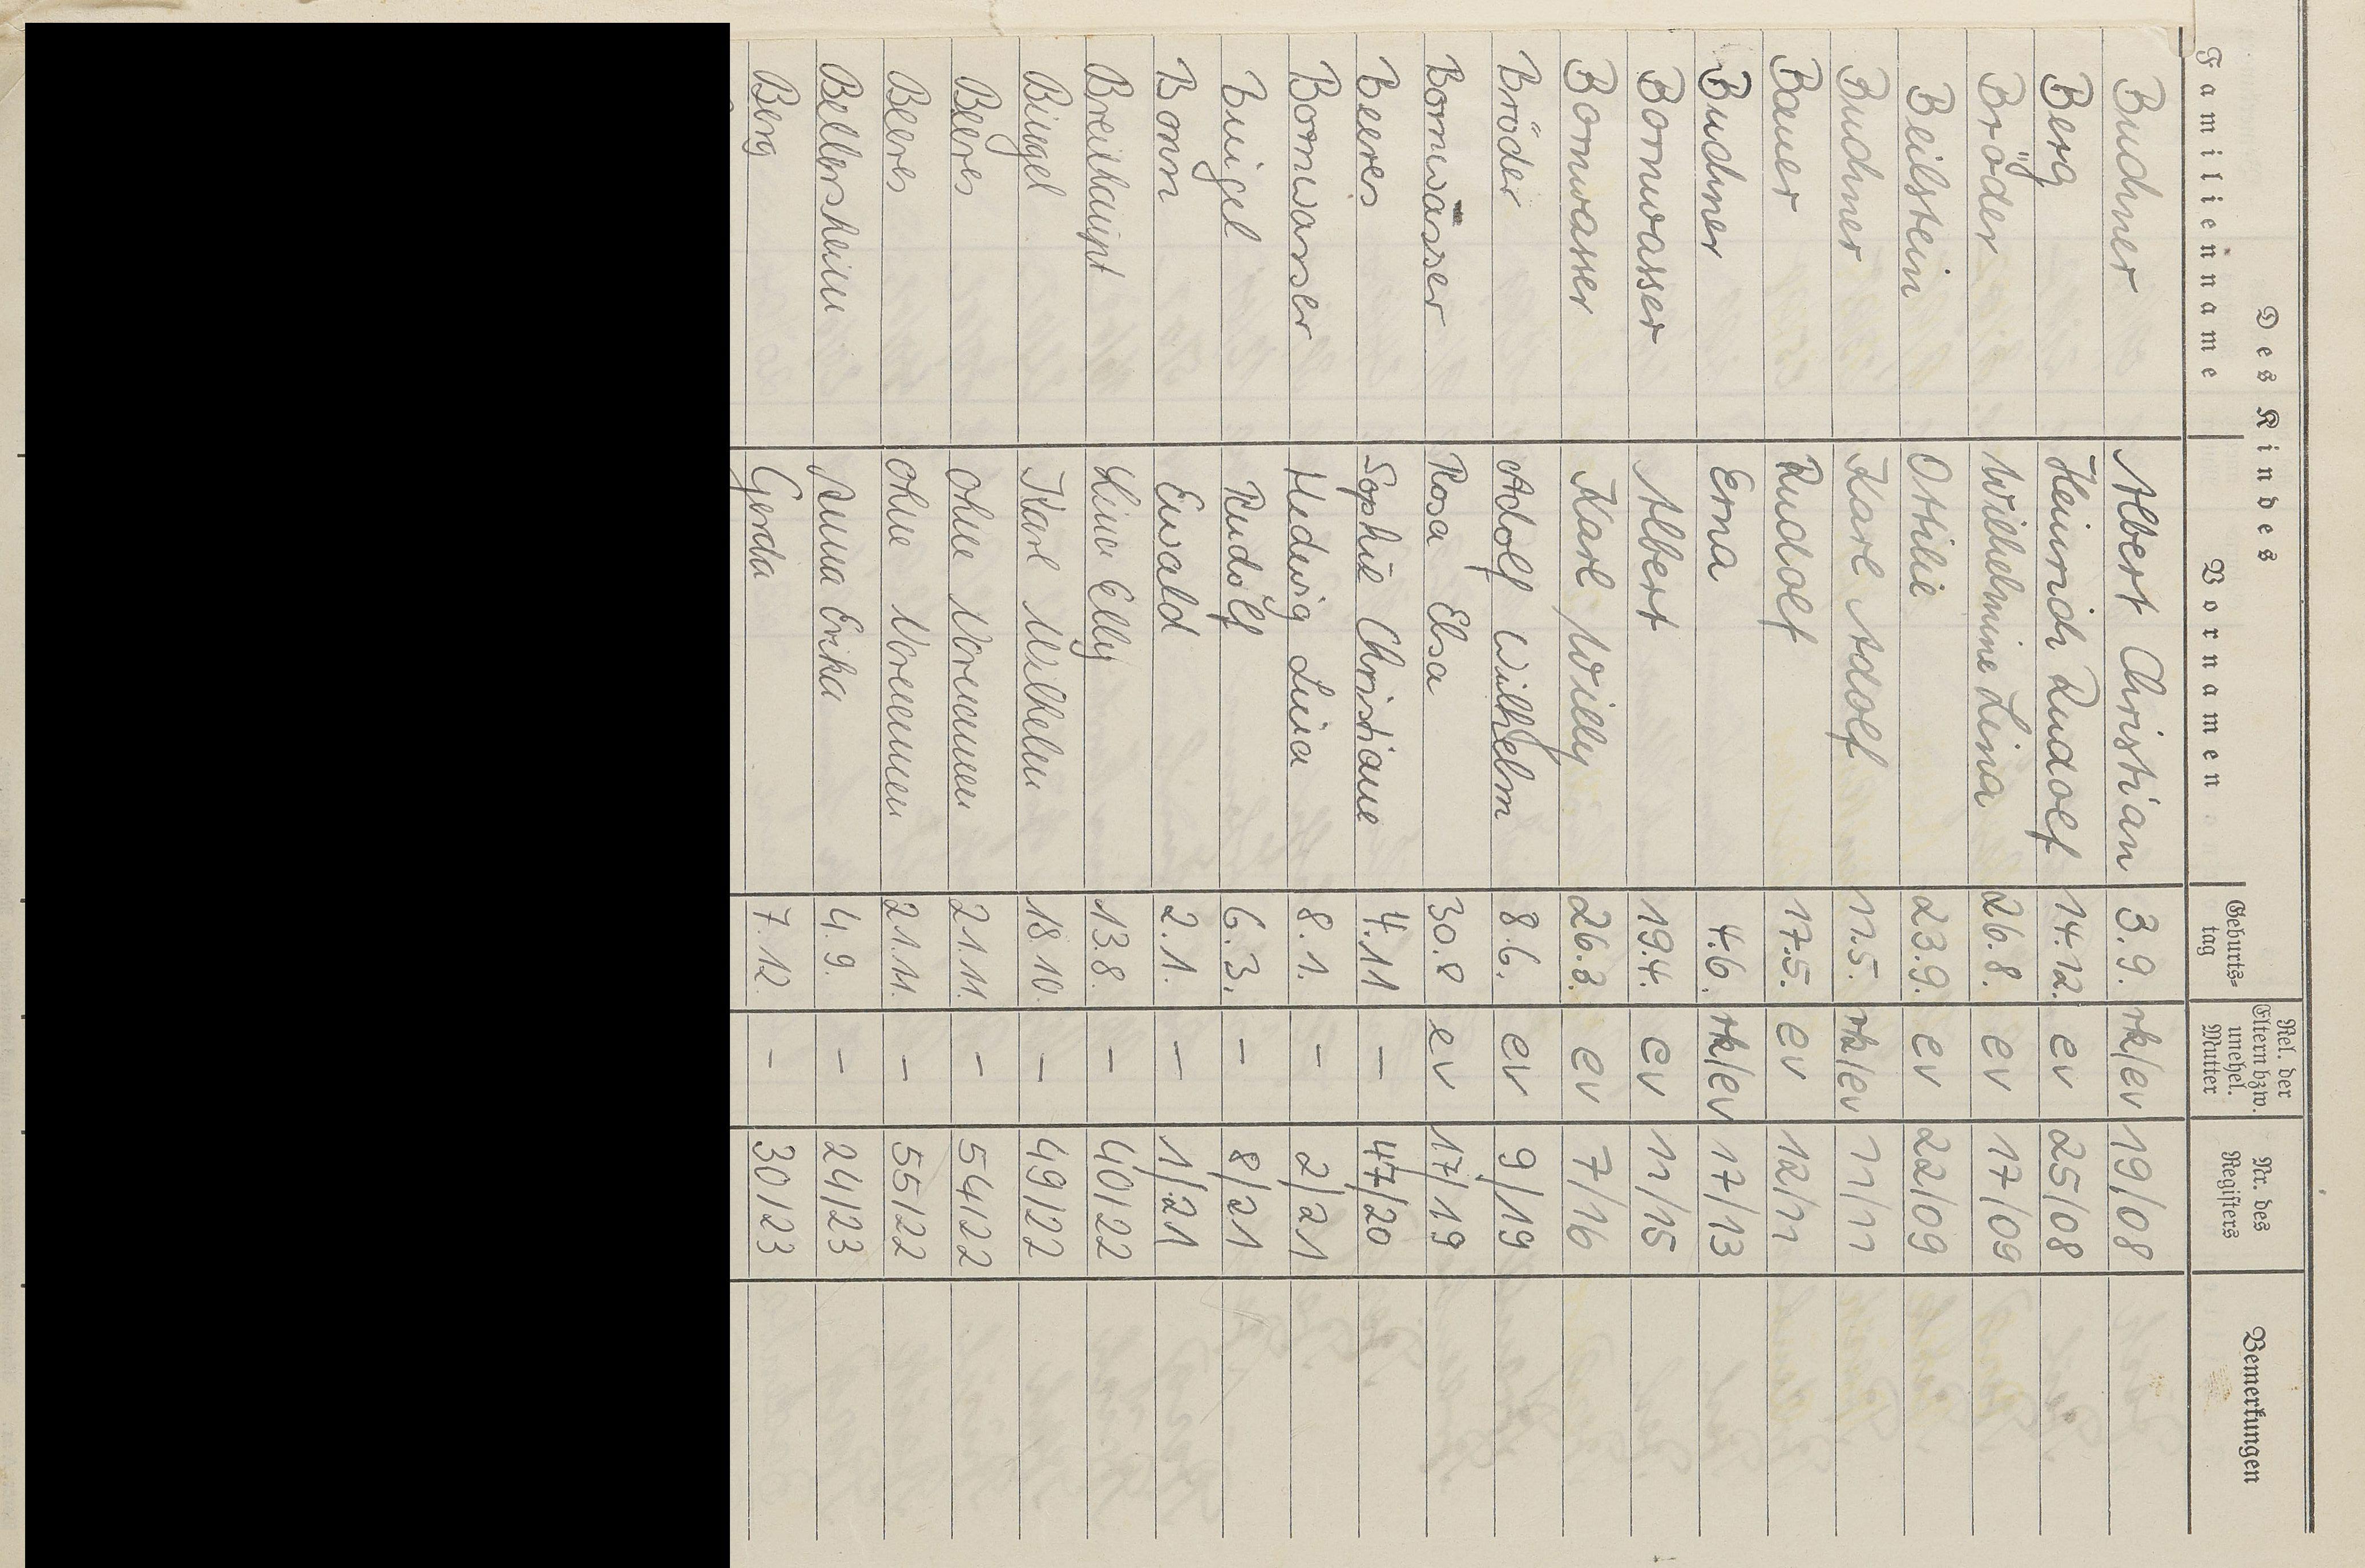 Des Kindes
Familienname Vornamen Geburts=tag Rel. der Eltern bzw. unehel. Mutter Nr. des Registers Bemerkungen
Buchner Albert Christian 3.9. rk/ev 19/08
Berg Heinrich Rudolf 14.12. ev 25/08
Bröder Wilhelmine Lina 26.8. ev 17/09
Beilstein Ottilie 23.9. ev 22/09
Buchner Karl Adolf 11.5. rk/ev 11/11
Bauer Rudolf 17.5. ev 12/11
Buchner Erna 4.6. rk/ev 17/13
Bornwasser Albert 19.4. ev 11/15
Bornwasser Karl Willy 26.3. ev 7/16
Bröder Adolf Wilhelm 8.6. ev 9/19
Bornwasser Rosa Elsa 30.8 ev 17/19
Beeres Sophie Christiane 4.11 – 47/20
Bornwasser Hedwig Lina 8.1. – 2/21
Bingel Rudolf 6.3. – 8/21
Bonn Ewald 2.1. – 1/21
Breithaupt Lina Elly 13.8. – 40/22
Bingel Karl Wilhelm 18.10. – 49/22
Beeres ohne Vornamen 21.11. – 54/22
Beeres ohne Vornamen 21.11. – 55/22
Bellersheim Anna Erika 4.9. – 24/23
Berg Gerda 7.12. – 30/23